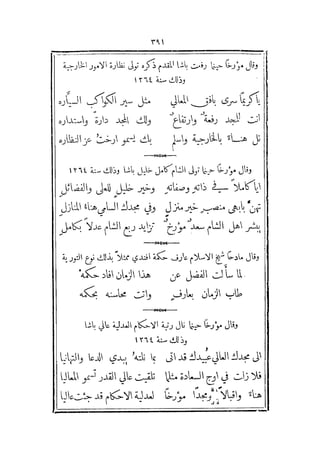 ٣٩١
وقال مؤرخًا حينما رفعت باشا المقدم ذكره تولى نظارة الامور الخارجية
وذلك سنة ١٢٦٤
ياكريمًا سرى بافق المعالي مثل سير الكواكب السيَّاره
انت للمجد رفعةٌ وارتفاعٌ ولك المجد دارةٌ واستداره
نل هنــاءً بالخارجية واسلم بك يسمو ارختُ عز النظاره
وقال مؤرخًا حينما تولى الشام كامل خليل باشا وذلك سنة ١٢٦٤
ايا كاملاً في ذاتهِ وصفاتهِ وخير خليلٍ للعلى والفضائلِ
تهنَّ بابهى منصبٍ خير منزلٍ وفي مجدك السامي هناءُ المنازلِ
يبشر اهل الشام سعدٌ مؤرخٌ تزايد ربع الشام عدلاً بكاملِ
وقال مادحًا شيخ الاسلام عارف حكمة افندي ممثلاً بذلك نوع التورية
لما سألت الفضل عن هذا الزمان افاد حكمهْ
طاب الزمان بعارفٍ واتت محاسنه بحكمه
وقال مؤرخًا حينما نال رتبة الاحكام العدلية عالي باشا
وذلك سنة ١٢٦٤
الى مجدك العالي عُبيدك قد اتى بما نلتهُ يبدي الدعا والتهانيا
فلا زلت في اوج السعادة مثلما تلقيت عالي القدر تسمو المعاليا
هناءً واقبالاً ومجدًا مؤرخًا لعدلية الاحكام قد جئت عاليا